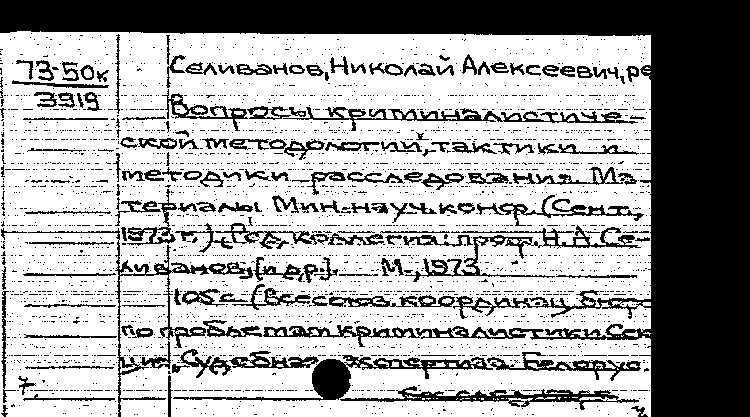 73-50к
3919
Селиванов, Николай Алексеевич, ре
Вопросы криминалистиче-
ской методологии, тактики и
методики расследования. Ма
териалы Мин.-науч. конф. (Сент.,
1973 г.). [Ред. коллегия: проф. Н. А. Се-
ливанов, [и др.]. М., 1973.
105 с. (Всесоюз. координац. бюро
по проблемам криминалистики. Сек
ция „Судебная экспертиза. Белорус.
См. след. карт.
7.